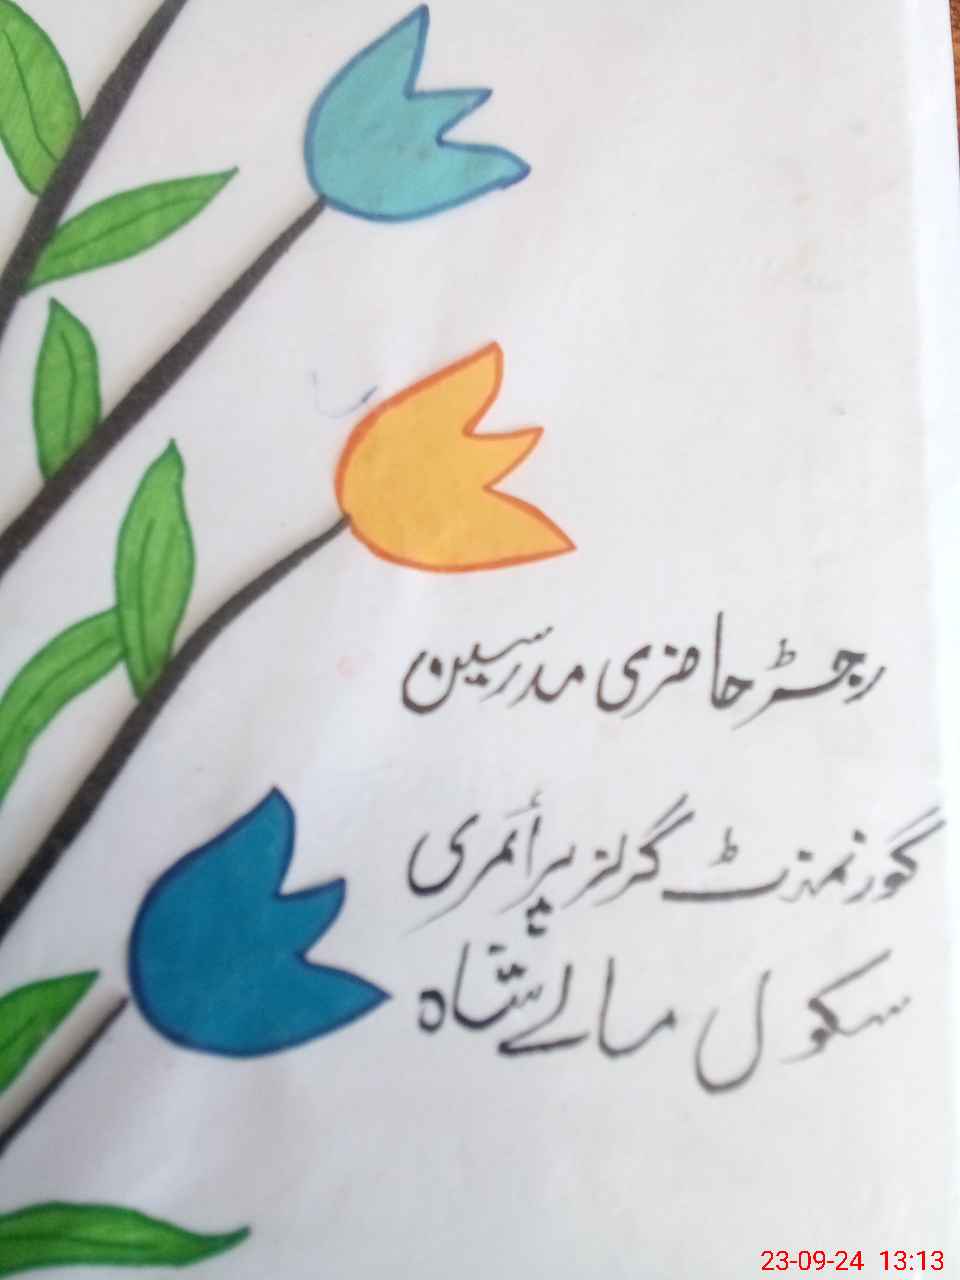 رجسٹر حاضری مدرسین
گورنمنٹ گرلز پرائمری
سکول مالے شاہ
23-09-24 13:13